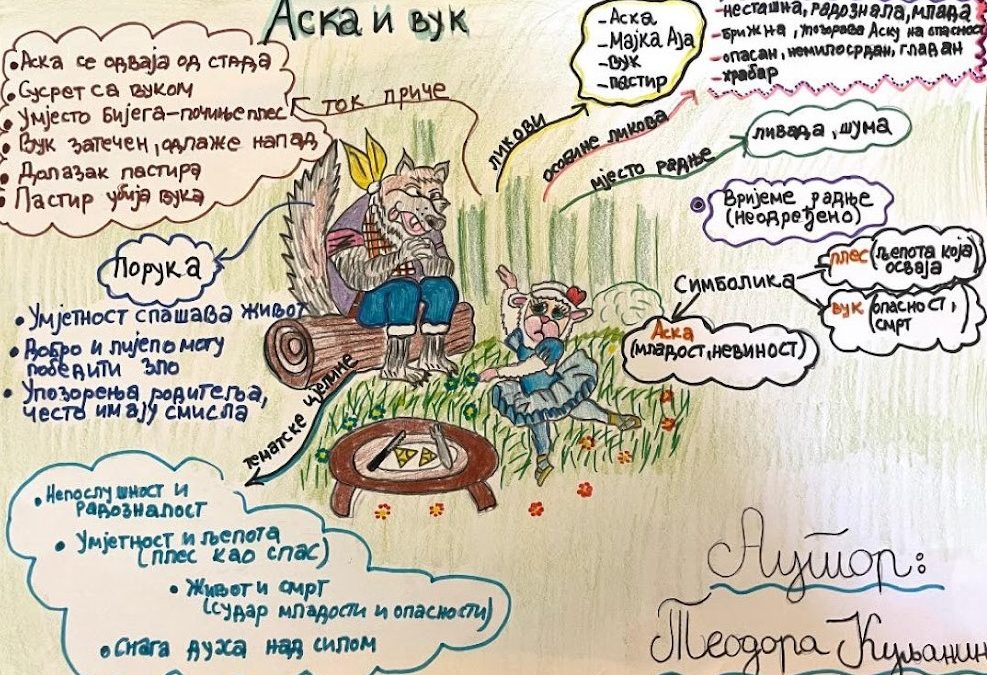 Аска и вук
• Аска се одваја од стада
• Сусрет са вуком
• Умјесто бијега-почиње плес
• Вук затечен, одлаже напад
• Долазак пастира
• Пастир убија вука
ток приче
ликови
-Аска
-Мајка Аја
-Вук
-пастир
особине ликова
-несташна, радознала, млада
-брижна, упозорава Аску на опасност
-опасан, немилосрдан, гладан
-храбар
мјесто радње
ливада, шума
Вријеме радње
(неодређено)
Символика
плес (љепота која
осваја
вук (опасност,
смрт
Аска
(младост, невиност)
Порука
• Умјетност спашава живот
• Добро и лијепо могу
побједити зло
• Упозорења родитеља,
често имају смисла
тематске цјелине
• Непослушност и
радозналост
• Умјетност и љепота
(плес као спас)
• Живот и смрт
(судар младости и опасности)
• Снага духа над силом
Аутор:
Теодора Куљанин